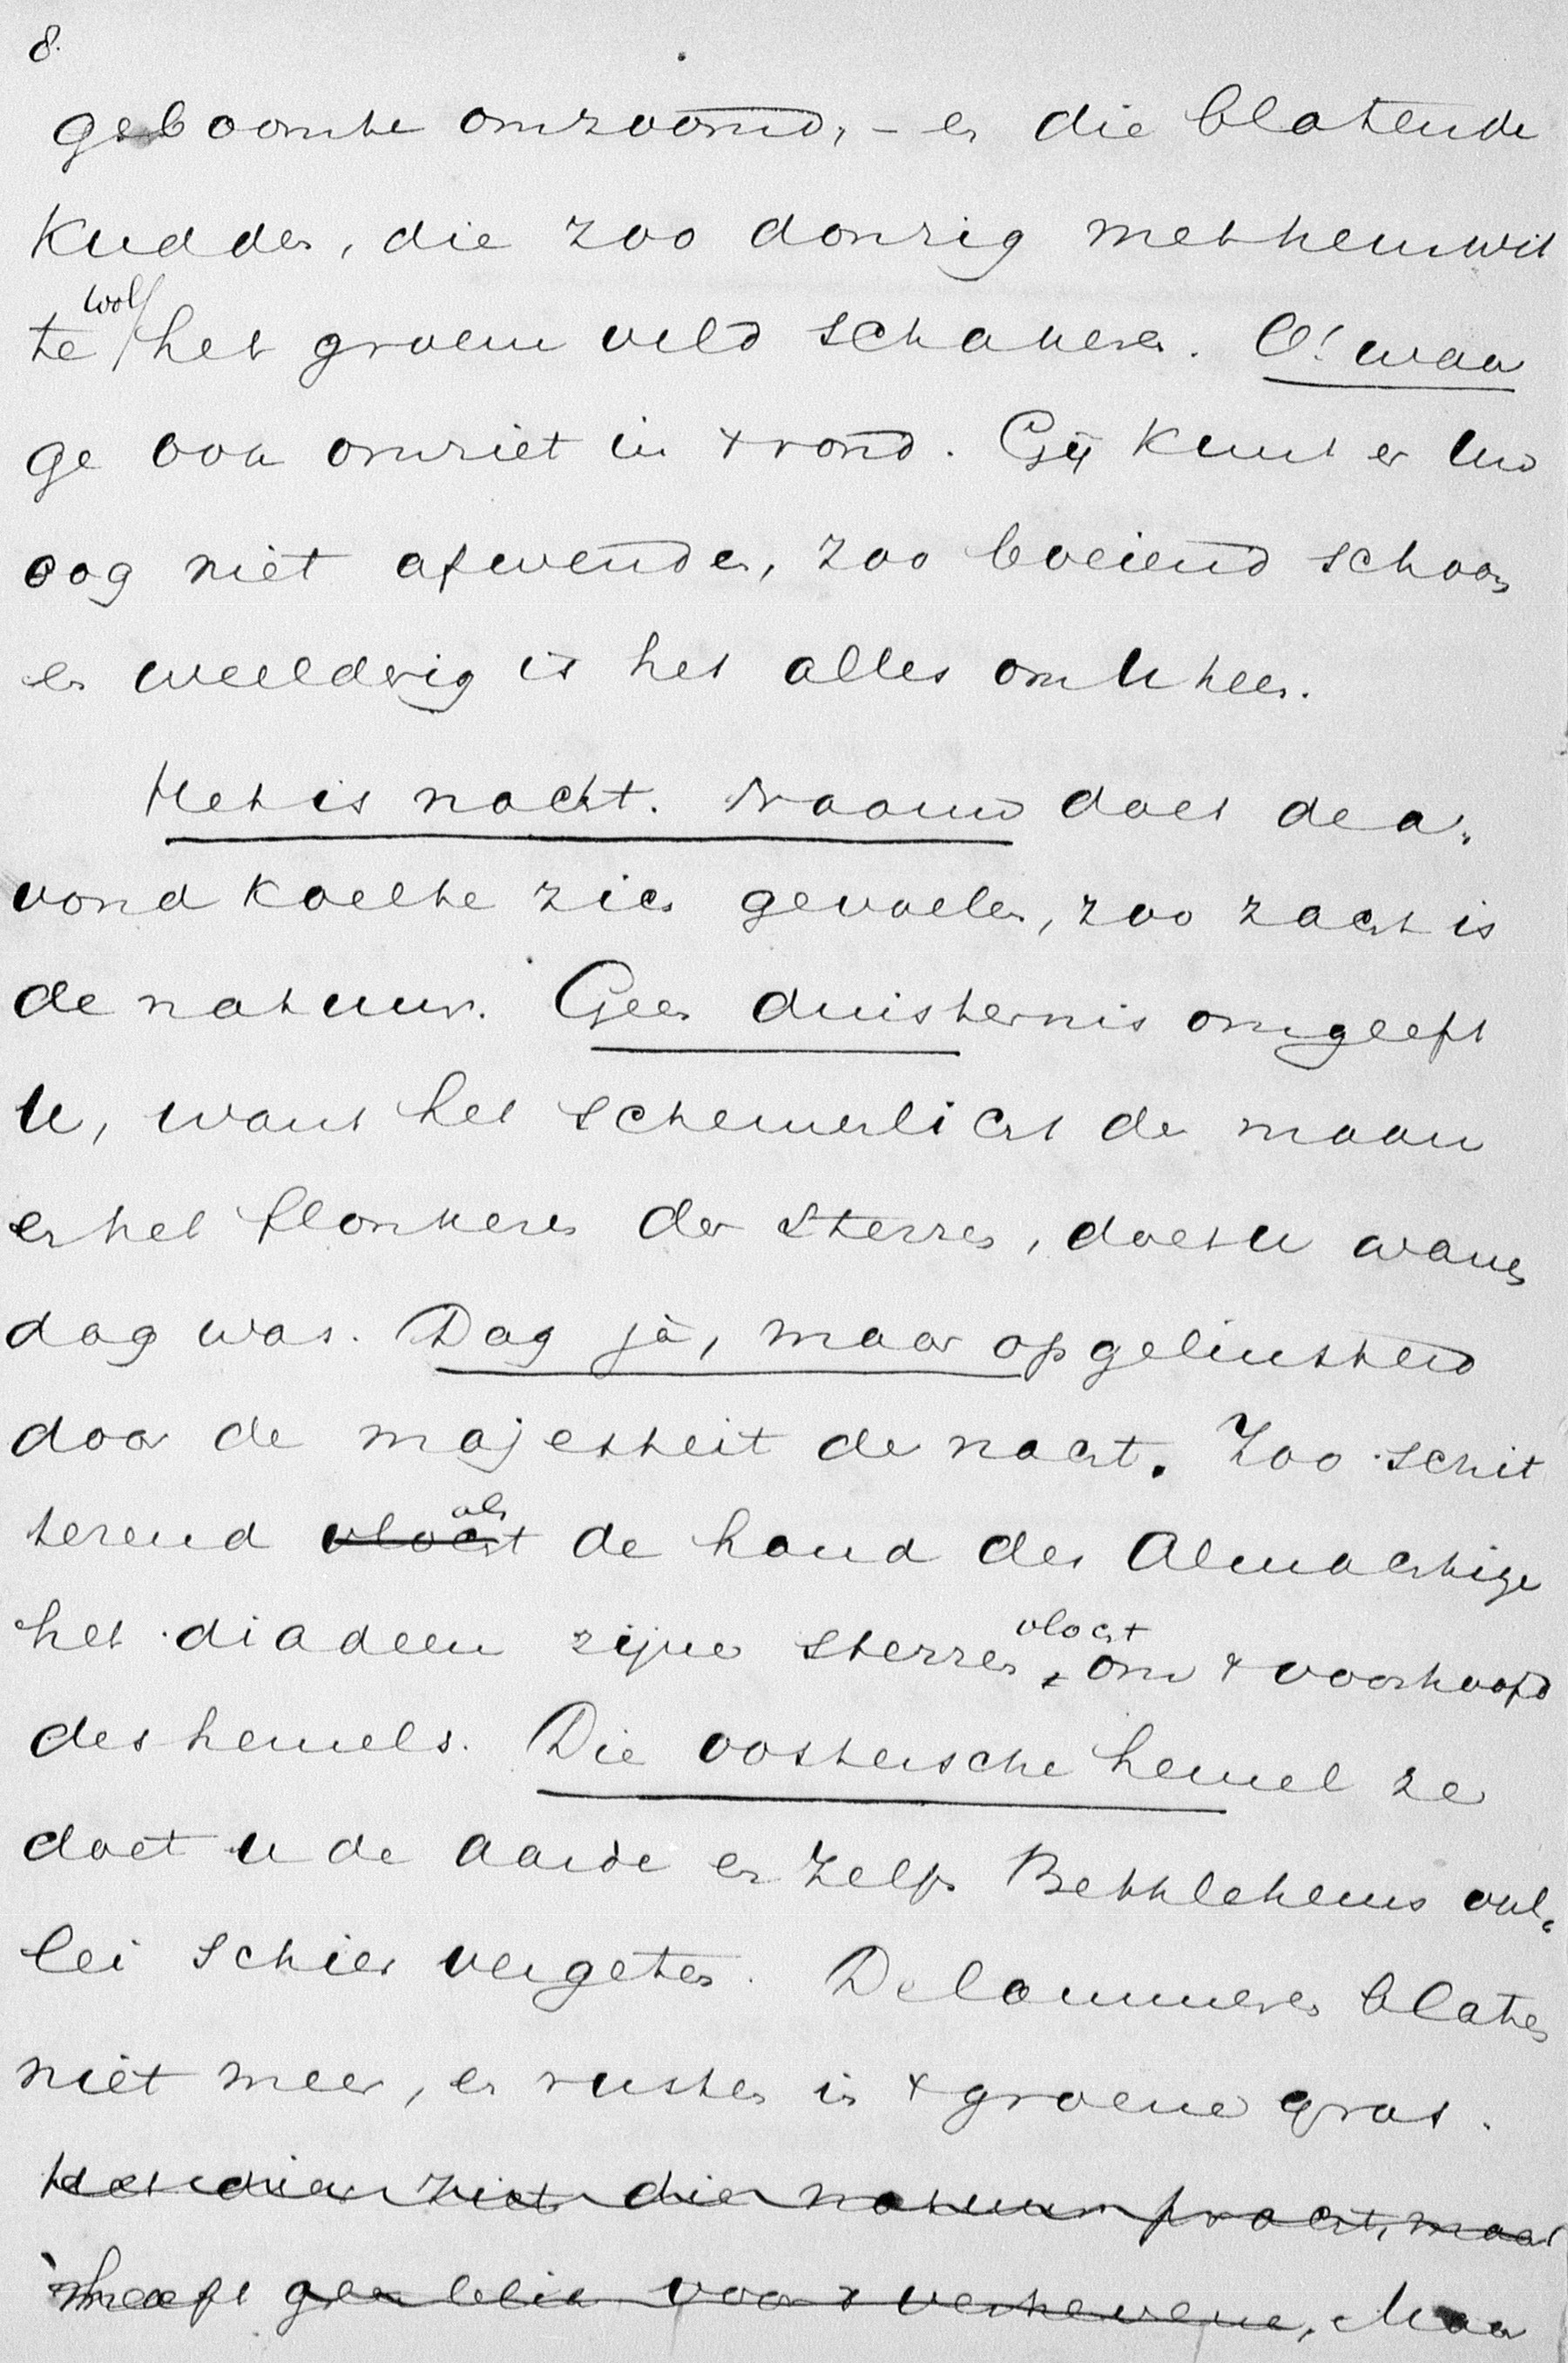 8.
geboomte omzoomd, - en die blatende
kudden, die zoo donzig met hun wit
te wol het groene veld schakeren. O! waar
ge ook omziet in 't rond. Gij kunt er uw
oog niet afwenden, zoo boeiend schoon
en weeldrig is het alles om U heen.
Het is nacht. Naauw doet de a-
vondkoelte zich gevoelen, zoo zacht is
de natuur. Geen duisternis omgeeft
U, want het schemerlicht der maan
en het flonkeren der sterren, doet u wanen
dag was. Dag ja, maar opgeluisterd
door de majesteit der nacht. Zoo schit
terend vlocht als de hand des Almachtige
het diadeem zijner sterren vlocht om 't voorhoofd
des hemels. Die oostersche hemel ze
doet u de aarde en zelfs Bethlehems val-
lei schier vergeten. De lammeren blaten
niet meer, en rusten in 't groene gras.
Het dier ziet die natuurpracht, maar
heeft geen blik voor 't verhevene, Maar